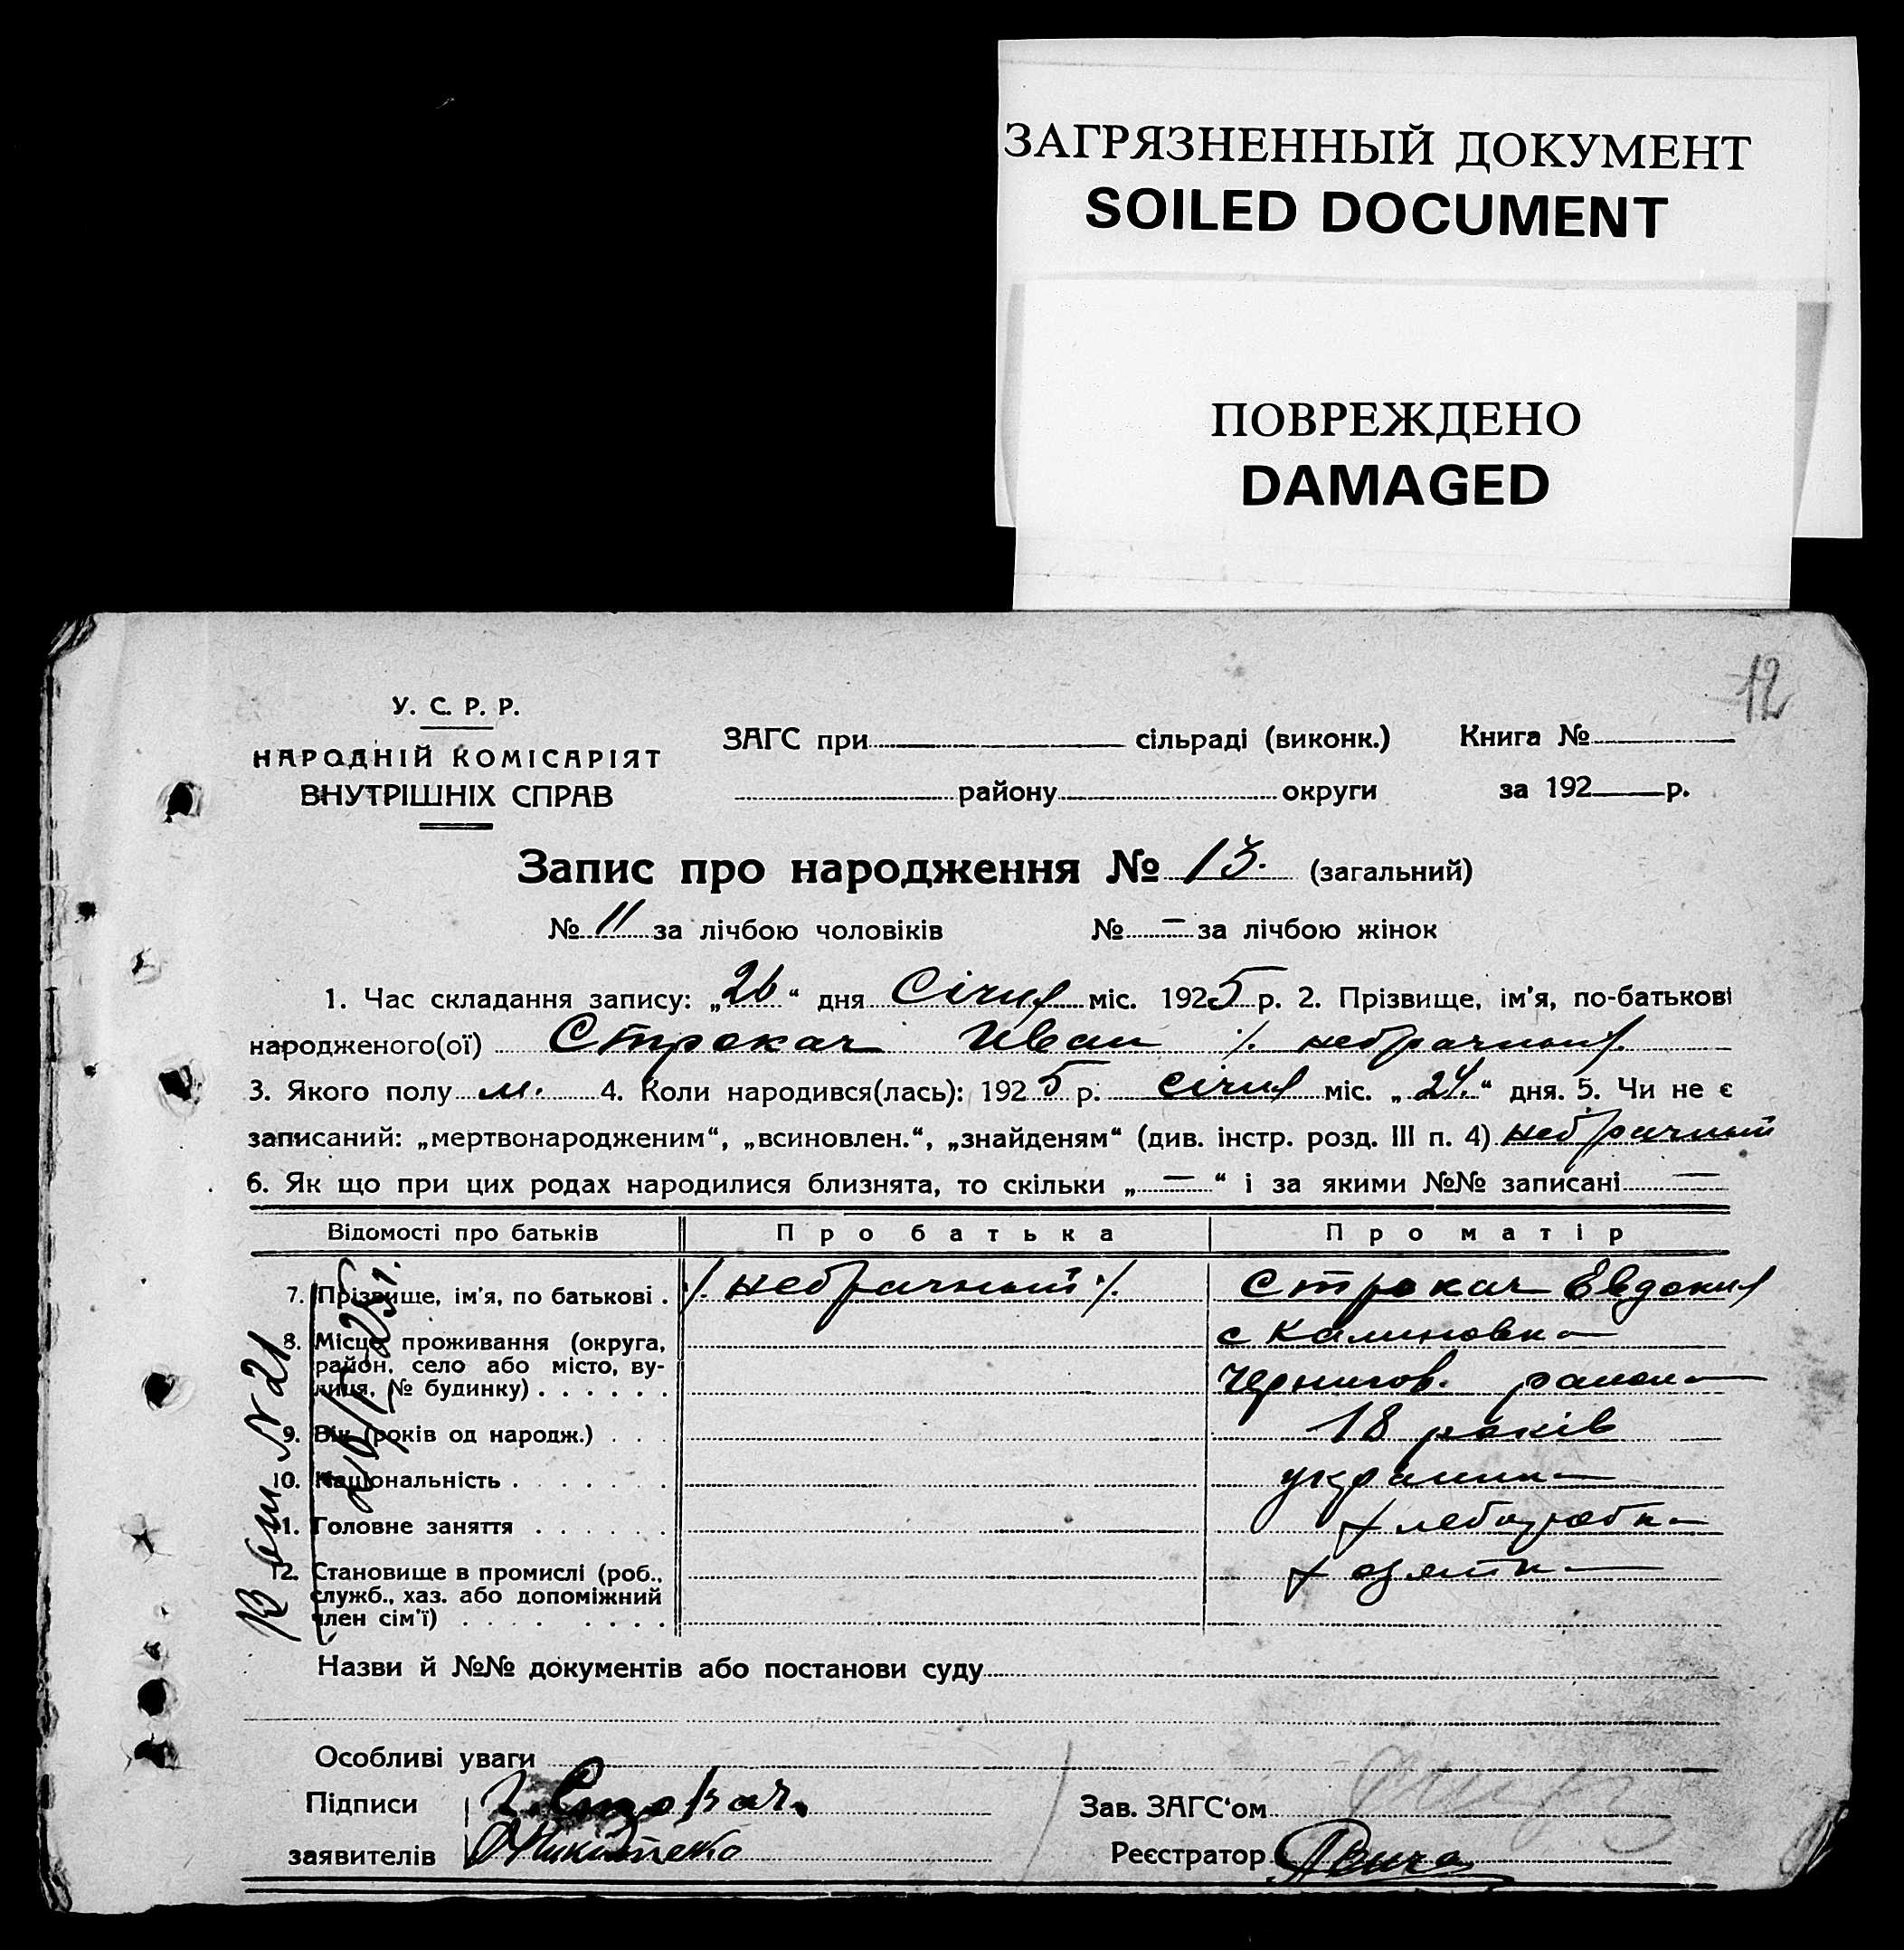 ЗАГРЯЗНЕННЫЙ ДОКУМЕНТ
SOILED DOCUMENT
ПОВРЕЖДЕНО
DAMAGED
12
У. С. Р. Р.
НАРОДНІЙ КОМІСАРІЯТ
ВНУТРІШНІХ СПРАВ
ЗАГС при сільраді (виконк.) Книга №
району округи за 192 р.
Запис про народження № 13. (загальний)
№ 11 за лічбою чоловіків № — за лічбою жінок
1. Час складання запису: „26“ дня Січня міс. 1925 р. 2. Прізвище, ім'я, по-батькові
народженого(ої) Строкач Иван ⁒ небрачный
3. Якого полу м. 4. Коли народився(лась): 1925 р. січня міс. „24.“ дня. 5. Чи не є
записаний: „мертвонародженим“, „всиновлен.“, „знайденям“ (див. інстр. розд. III п. 4) небрачный
6. Як що при цих родах народилися близнята, то скільки „—“ і за якими №№ записані —
Відомості про батьків Про батька Про матір
7. Прізвище, ім'я, по батькові . ⁒ небрачный ⁒ Строкач Евдокия
8. Місце проживання (округа, с Калиновка
район, село або місто, ву-
лиця, № будинку) . . . . . . Чернигов. района
9. Вік (років од народж.) . . . 18 років
10. Національність . . . . . . . украинка
11. Головне заняття . . . . . . хлеборобка
12. Становище в промислі (роб., хозяйка
служб., хаз. або допоміжний
член сім'ї) . . . . . . . .
В № 21
Назви й №№ документів або постанови суду
Особливі уваги
Підписи Строкач.
Зав. ЗАГС'ом
заявителів
Реєстратор